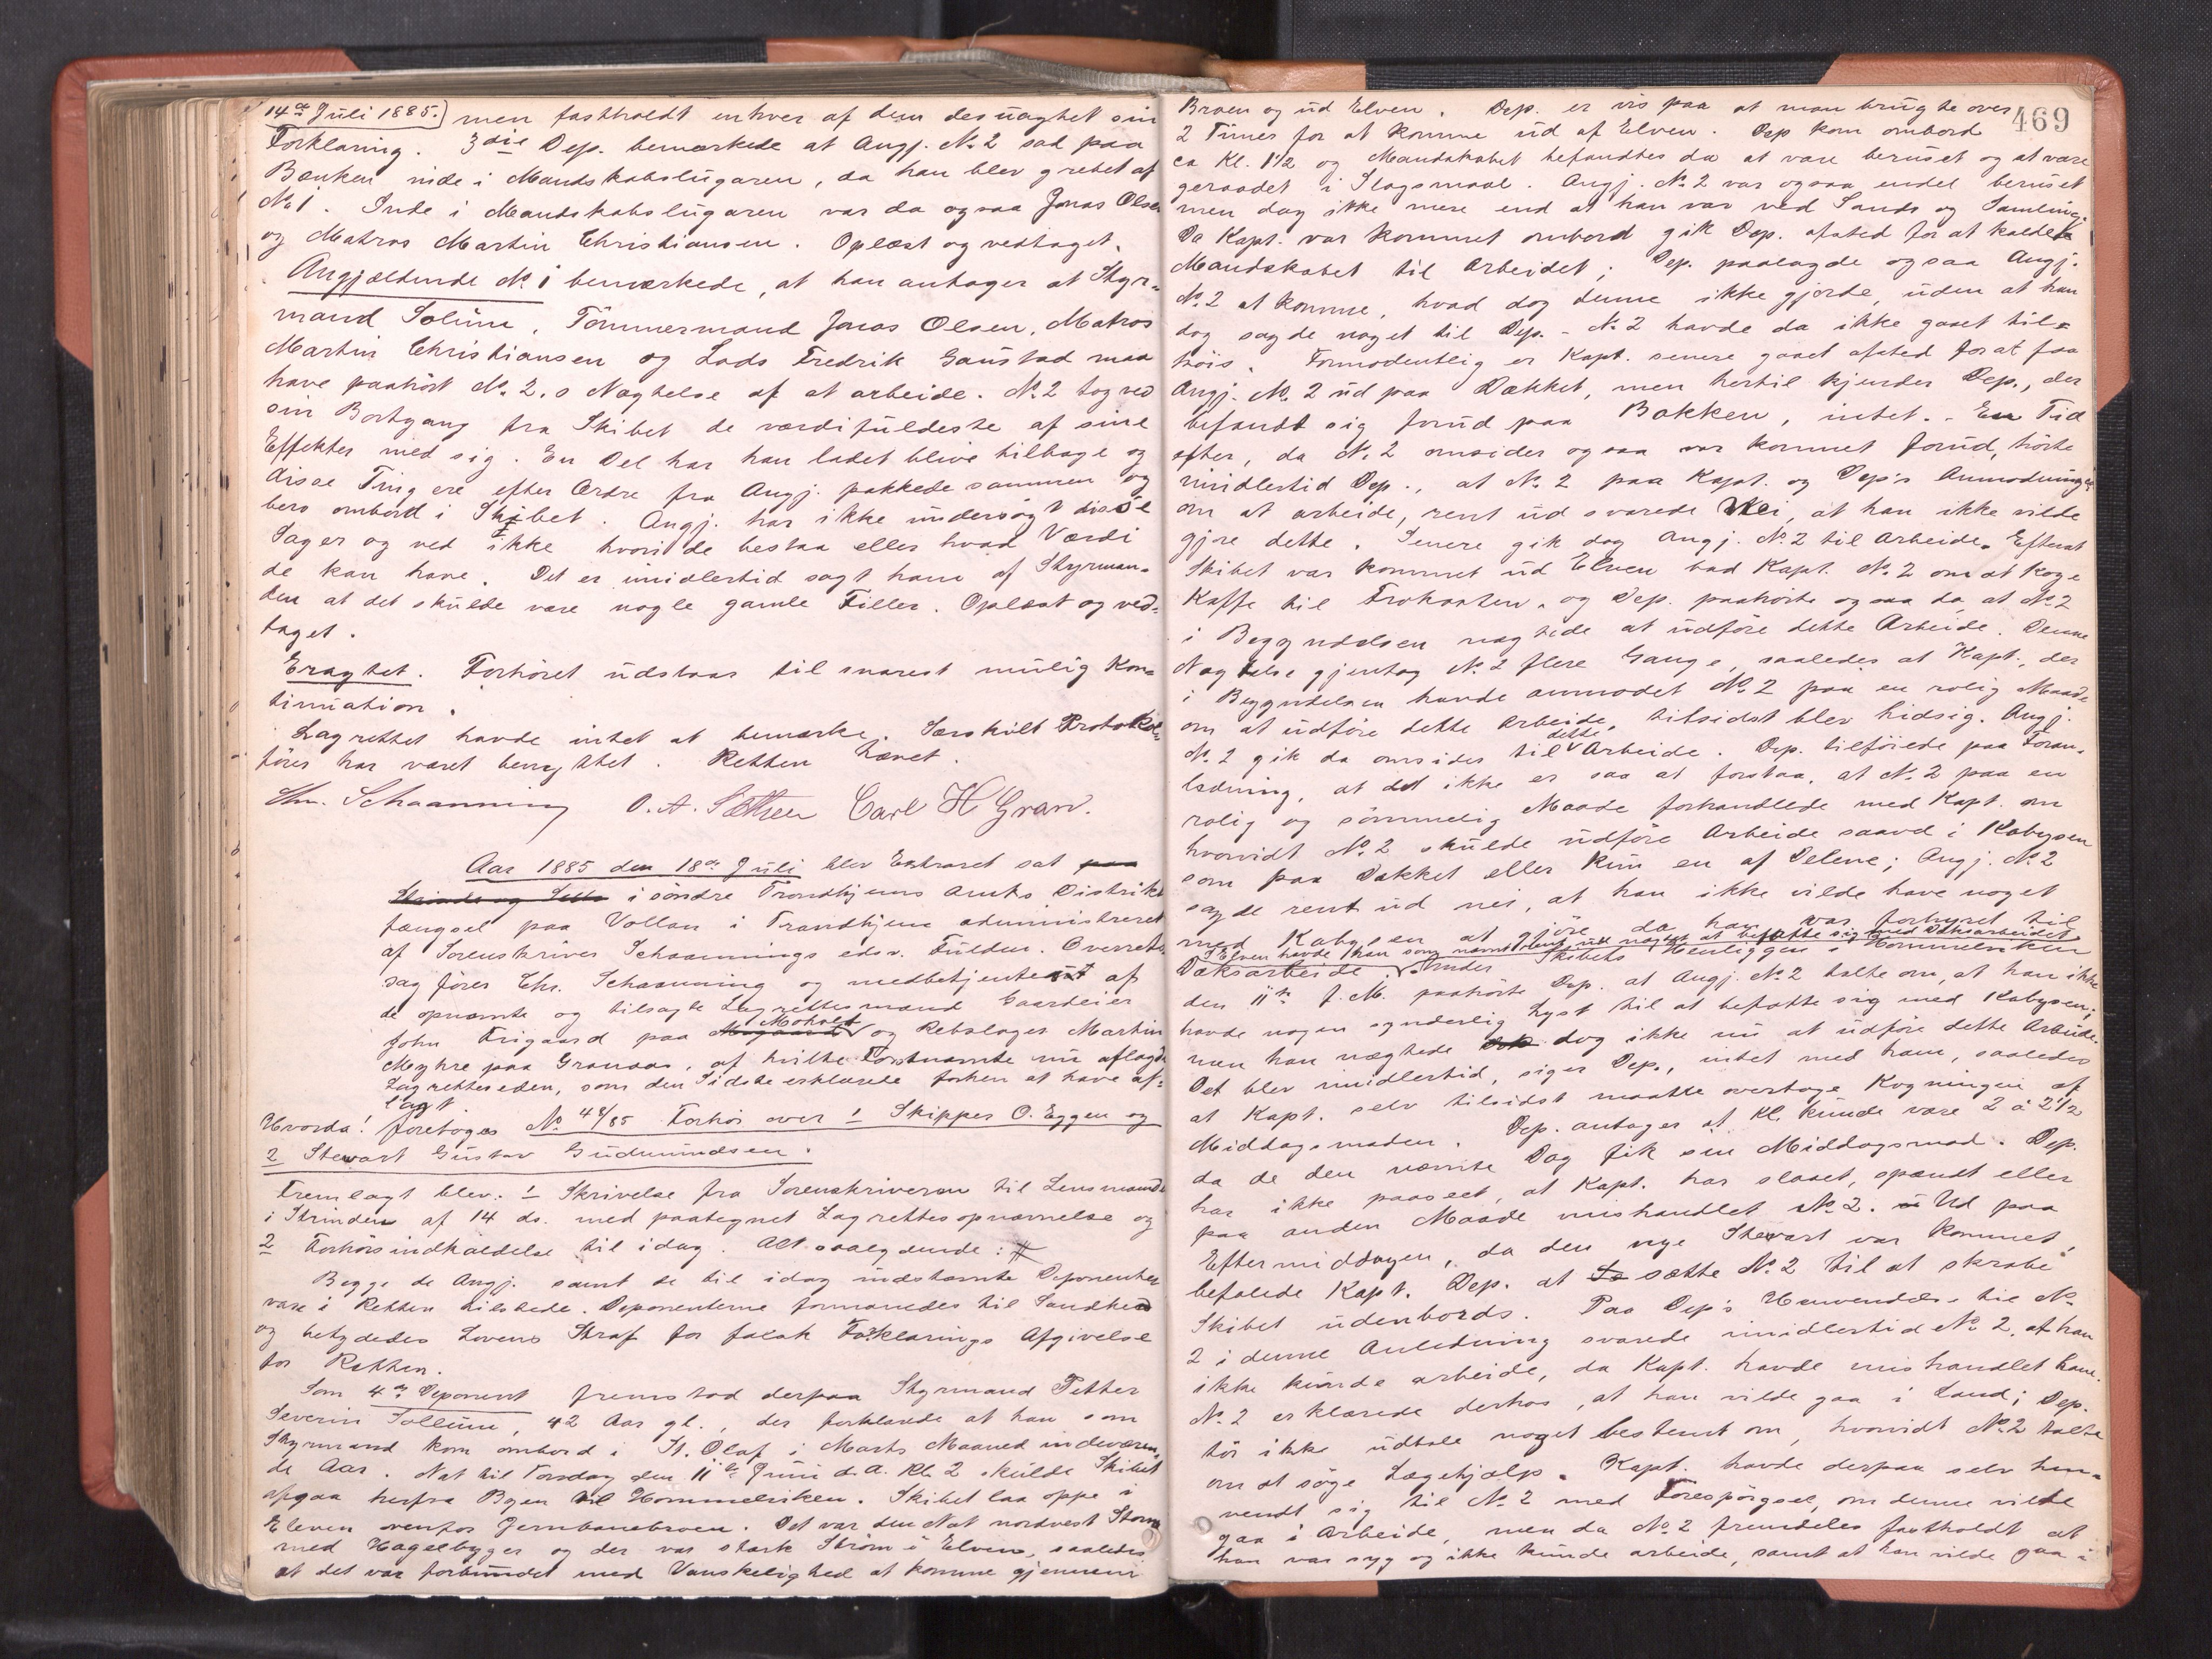 14de Juli 1885.) men fastholdt enhver af dem desuagtet sin
Forklaring. 3die Dep. bemærkede at Angj. No 2 sad paa
Bænken inde i Mandskabslugaren, da han blev grebet af
No 1. Inde i Mandskabslugaren var da ogsaa Jonas Olsen
og Matros Martin Christiansen. Oplæst og vedtaget.
Angjældende No 1 bemærkede, at han antager at Styr-
mand Solum, Tömmermand Jonas Olsen, Matros
Martin Christiansen og Lods Fredrik Gaustad maa
have paahört No. 2.s Nægtelse af at arbeide. No 2 tog ved
sin Bortgang fra Skibet de værdifuldeste af sine
Effekter med sig. En Del har han ladet blive tilbage og
disse Ting ere efter Ordre fra Angj. pakkede sammen og
bero ombord i Skibet. Angj. har ikke undersögt disse
Sager og ved ikke hvori de bestaa eller hvad Værdi
de kan have. Det er imidlertid sagt ham af Styrman-
den at det skulde være nogle gamle Filler. Oplæst og ved-
taget.
Eragtet. Forhöret udstaar til snarest mulig Kon-
tinuation.
Lagrettet havde intet at bemærke. Særskilt Protokol-
förer har været benyttet. Retten hævet.
Chr. Schaanning O. A. Sæther Carl H Gran.
Aar 1885 den 18de Juli blev Extraret sat paa
Strinde og Selbo i söndre Trondhjems Amts Distrikts
fængsel paa Vollan i Trondhjem administreret
af Sorenskriver Schaannings edsv. Fuldm. Overrets-
sagförer Chr. Schaanning og medbetjent af
de opnævnte og tilsagte Lagrettesmænd Gaardeier
John Frigaard paa Moholt og Rebslager Martin
Myhre paa Granaas, af hvilke Förstnævnte nu aflagde
Lagretteseden, som den Sidste erklærede forhen at have af-
lagt
Hvorda! foretoges No 48/85 Forhör over 1 Skipper O. Eggen og
2 Stewart Gustav Gudmundsen.
Fremlagt blev: 1 Skrivelse fra Sorenskriveren til Lensmanden
i Strinden af 14 ds. med paategnet Lagrettesopnævnelse og
2 Forhörsindkaldelse til idag. Alt saalydende: #
Begge de Angj. samt de til idag indstævnte Deponenter
vare i Retten tilstede. Deponenterne formanedes til Sandhed
og betydedes Lovens Straf for falsk Forklarings Afgivelse
for Retten.
Som 4de Deponent fremstod derpaa Styrmand Petter
Severin Sollum, 42 Aar gl., der forklarede at han som
Styrmand kom ombord i St. Olaf i Marts Maaned indeværen-
de Aar. Nat til Torsdag den 11te Juni d. A. Kl. 2 skulde Skibet
afgaa herfra Byen til Hommelviken. Skibet laa oppe i
Elven ovenfor Jernbanebroen. Det var den Nat nordvest Storm
med Hagelbyger og der var stærk Ström i Elven, saaledes
at det var forbundet med Vanskelighed at komme gjennem
469
Broen og ud Elven. Dep. er vis paa at man brugte over
2 Timer for at komme ud af Elven. Dep kom ombord
ca Kl. 1 1/2 og Mandskabet befandtes da at være beruset og at være
geraadet i Slagsmaal. Angj. No. 2 var ogsaa endel beruset
men dog ikke mere end at han var ved Sands og Samling.
Da Kapt. var kommet ombord gik Dep. afsted for at kalde
Mandskabet til Arbeidet; Dep. paalagde ogsaa Angj.
No. 2 at komme, hvad dog denne ikke gjorde, uden at han
dog sagde noget til Dep. - No 2 havde da ikke gaaet til-
köis. Formodentlig er Kapt. senere gaaet afsted for at faa
Angj. No. 2 ud paa Dækket, men hertil kjender Dep., der
befandt sig forud paa Bakken, intet. - En Tid
efter, da No. 2 omsider ogsaa var kommet forud, hörte
imidlertid Dep., at No. 2 paa Kapt. og Dep's Anmodning
om at arbeide, rent ud svarede Nei, at han ikke vilde
gjöre dette. Senere gik dog Angj. No. 2 til Arbeide. Efterat
Skibet var kommet ud Elven bad Kapt. No. 2 om at koge
Kaffe til Frokosten, og Dep. paahörte ogsaa da at No 2
i Begyndelsen nægtede at udföre dette Arbeide. Denne
Nægtelse gjentog No. 2 flere Gange, saaledes at Kapt., der
i Begyndelsen havde anmodet No. 2 paa en rolig Maade
om at udföre dette Arbeide, tilsidst blev hidsig. Angj.
No. 2 gik da omsider til dette Arbeide. Dep. tilföiede paa Foran-
ledning, at det ikke er saa at forstaa, at No. 2 paa en
rolig og sömmelig Maade forhandlede med Kapt. om
hvorvidt No. 2 skulde udföre Arbeide saavel i Kabysen
som paa Dækket eller kun en af Delene; Angj. No. 2
sagde rent ud nei, at han ikke vilde have noget
med Kabysen at gjöre da han var forhyret til
I Elven havde han som nævnt rent ud nægtet at befatte sig med Dæksarbeidet.
Dæksarbeide. Under Skibets Henliggen i Hommelviken
den 11te f. M. paahörte Dep. at Angj. No. 2 talte om, at han ikke
havde nogen synderlig Lyst til at befatte sig med Kabysen;
men han nægtede dog ikke nu at udföre dette Arbeide.
Det blev imidlertid, siger Dep., intet med ham, saaledes
at Kapt. selv tilsidst maatte overtage Kogningen af
Middagsmaden. Dep. antager at Kl. kunde være 2 à 2 1/2
da de den nævnte Dag fik sin Middagsmad. Dep.
har ikke paaseet, at Kapt. har slaaet, spændt eller
paa anden Maade mishandlet No. 2. Ud paa
Eftermiddagen, da den nye Stewart var kommet,
befalede Kapt. Dep. at sætte No. 2 til at skrabe
Skibet udenbords. Paa Dep's Henvendelse til No.
2 i denne Anledning svarede imidlertid No. 2, at han
ikke kunde arbeide, da Kapt. havde mishandlet ham.
No. 2 erklærede derhos, at han vilde gaa i Land; Dep.
tör ikke udtale noget bestemt om, hvorvidt No. 2 talte
om at söge Lægehjælp. Kapt. havde derpaa selv hen-
vendt sig til No. 2 med Forespörgsel, om denne vilde
gaa i Arbeide, men da No. 2 fremdeles fastholdt at
han var syg og ikke kunde arbeide, samt at han vilde gaa i